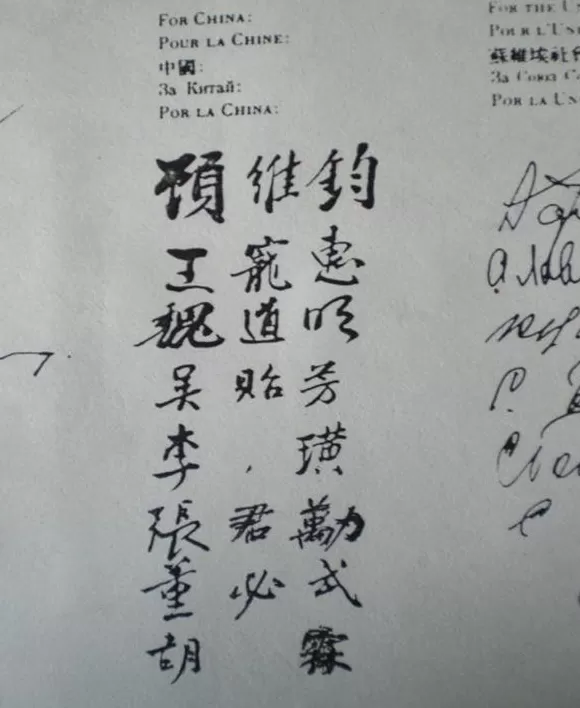 FOR CHINA:
POUR LA CHINE:
中國:
За Китай:
POR LA CHINA:
顧維鈞
王寵惠
魏道明
吳貽芳
李璜
張君勱
董必武
胡霖
FOR THE UN
POUR L'UN
蘇維埃社會
За Союз С
POR LA UN